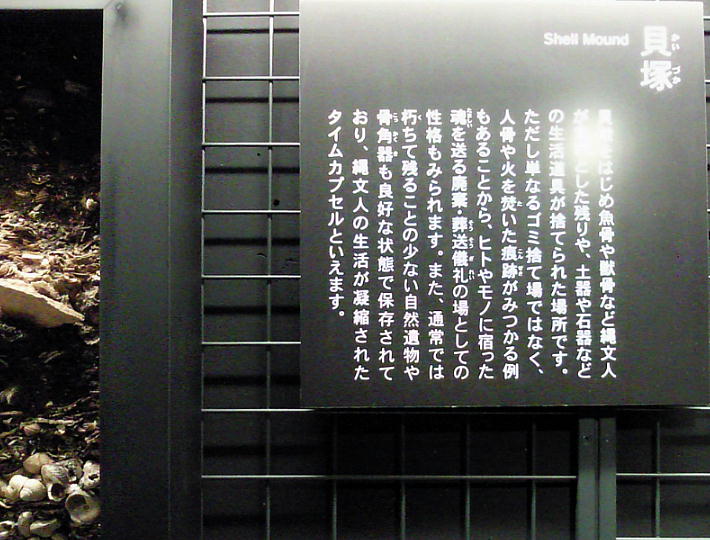 Shell Mound
貝塚
かい づか
貝殻をはじめ魚骨や獣骨など縄文人
が とした残りや、土器や石器など
の生活道具が捨てられた場所です。
ただし単なるゴミ捨て場ではなく、
人骨や火を焚いた痕跡がみつかる例
もあることから、ヒトやモノに宿った
魂を送る廃棄・葬送儀礼の場としての
性格もみられます。また、通常では
朽ちて残ることの少ない自然遺物や
骨角器も良好な状態で保存されて
おり、縄文人の生活が凝縮された
タイムカプセルといえます。